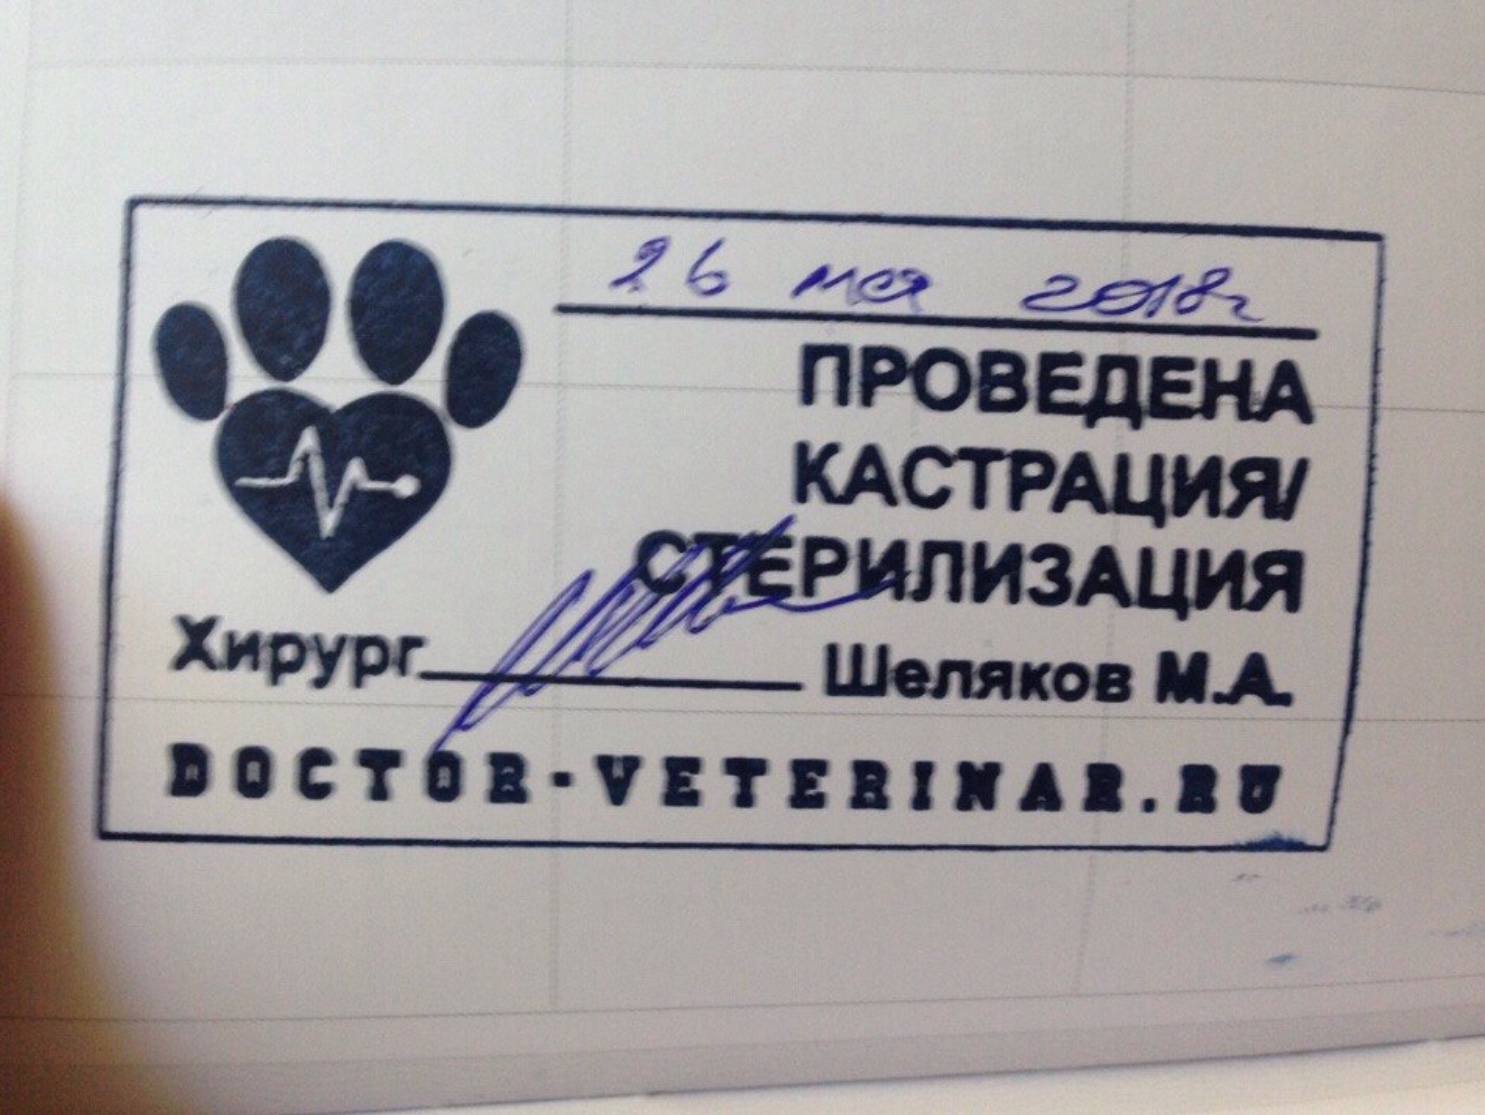 26 мая 2018г
ПРОВЕДЕНА
КАСТРАЦИЯ/
СТЕРИЛИЗАЦИЯ
Хирург Шеляков М.А.
DOCTOR-VETERINAR.RU